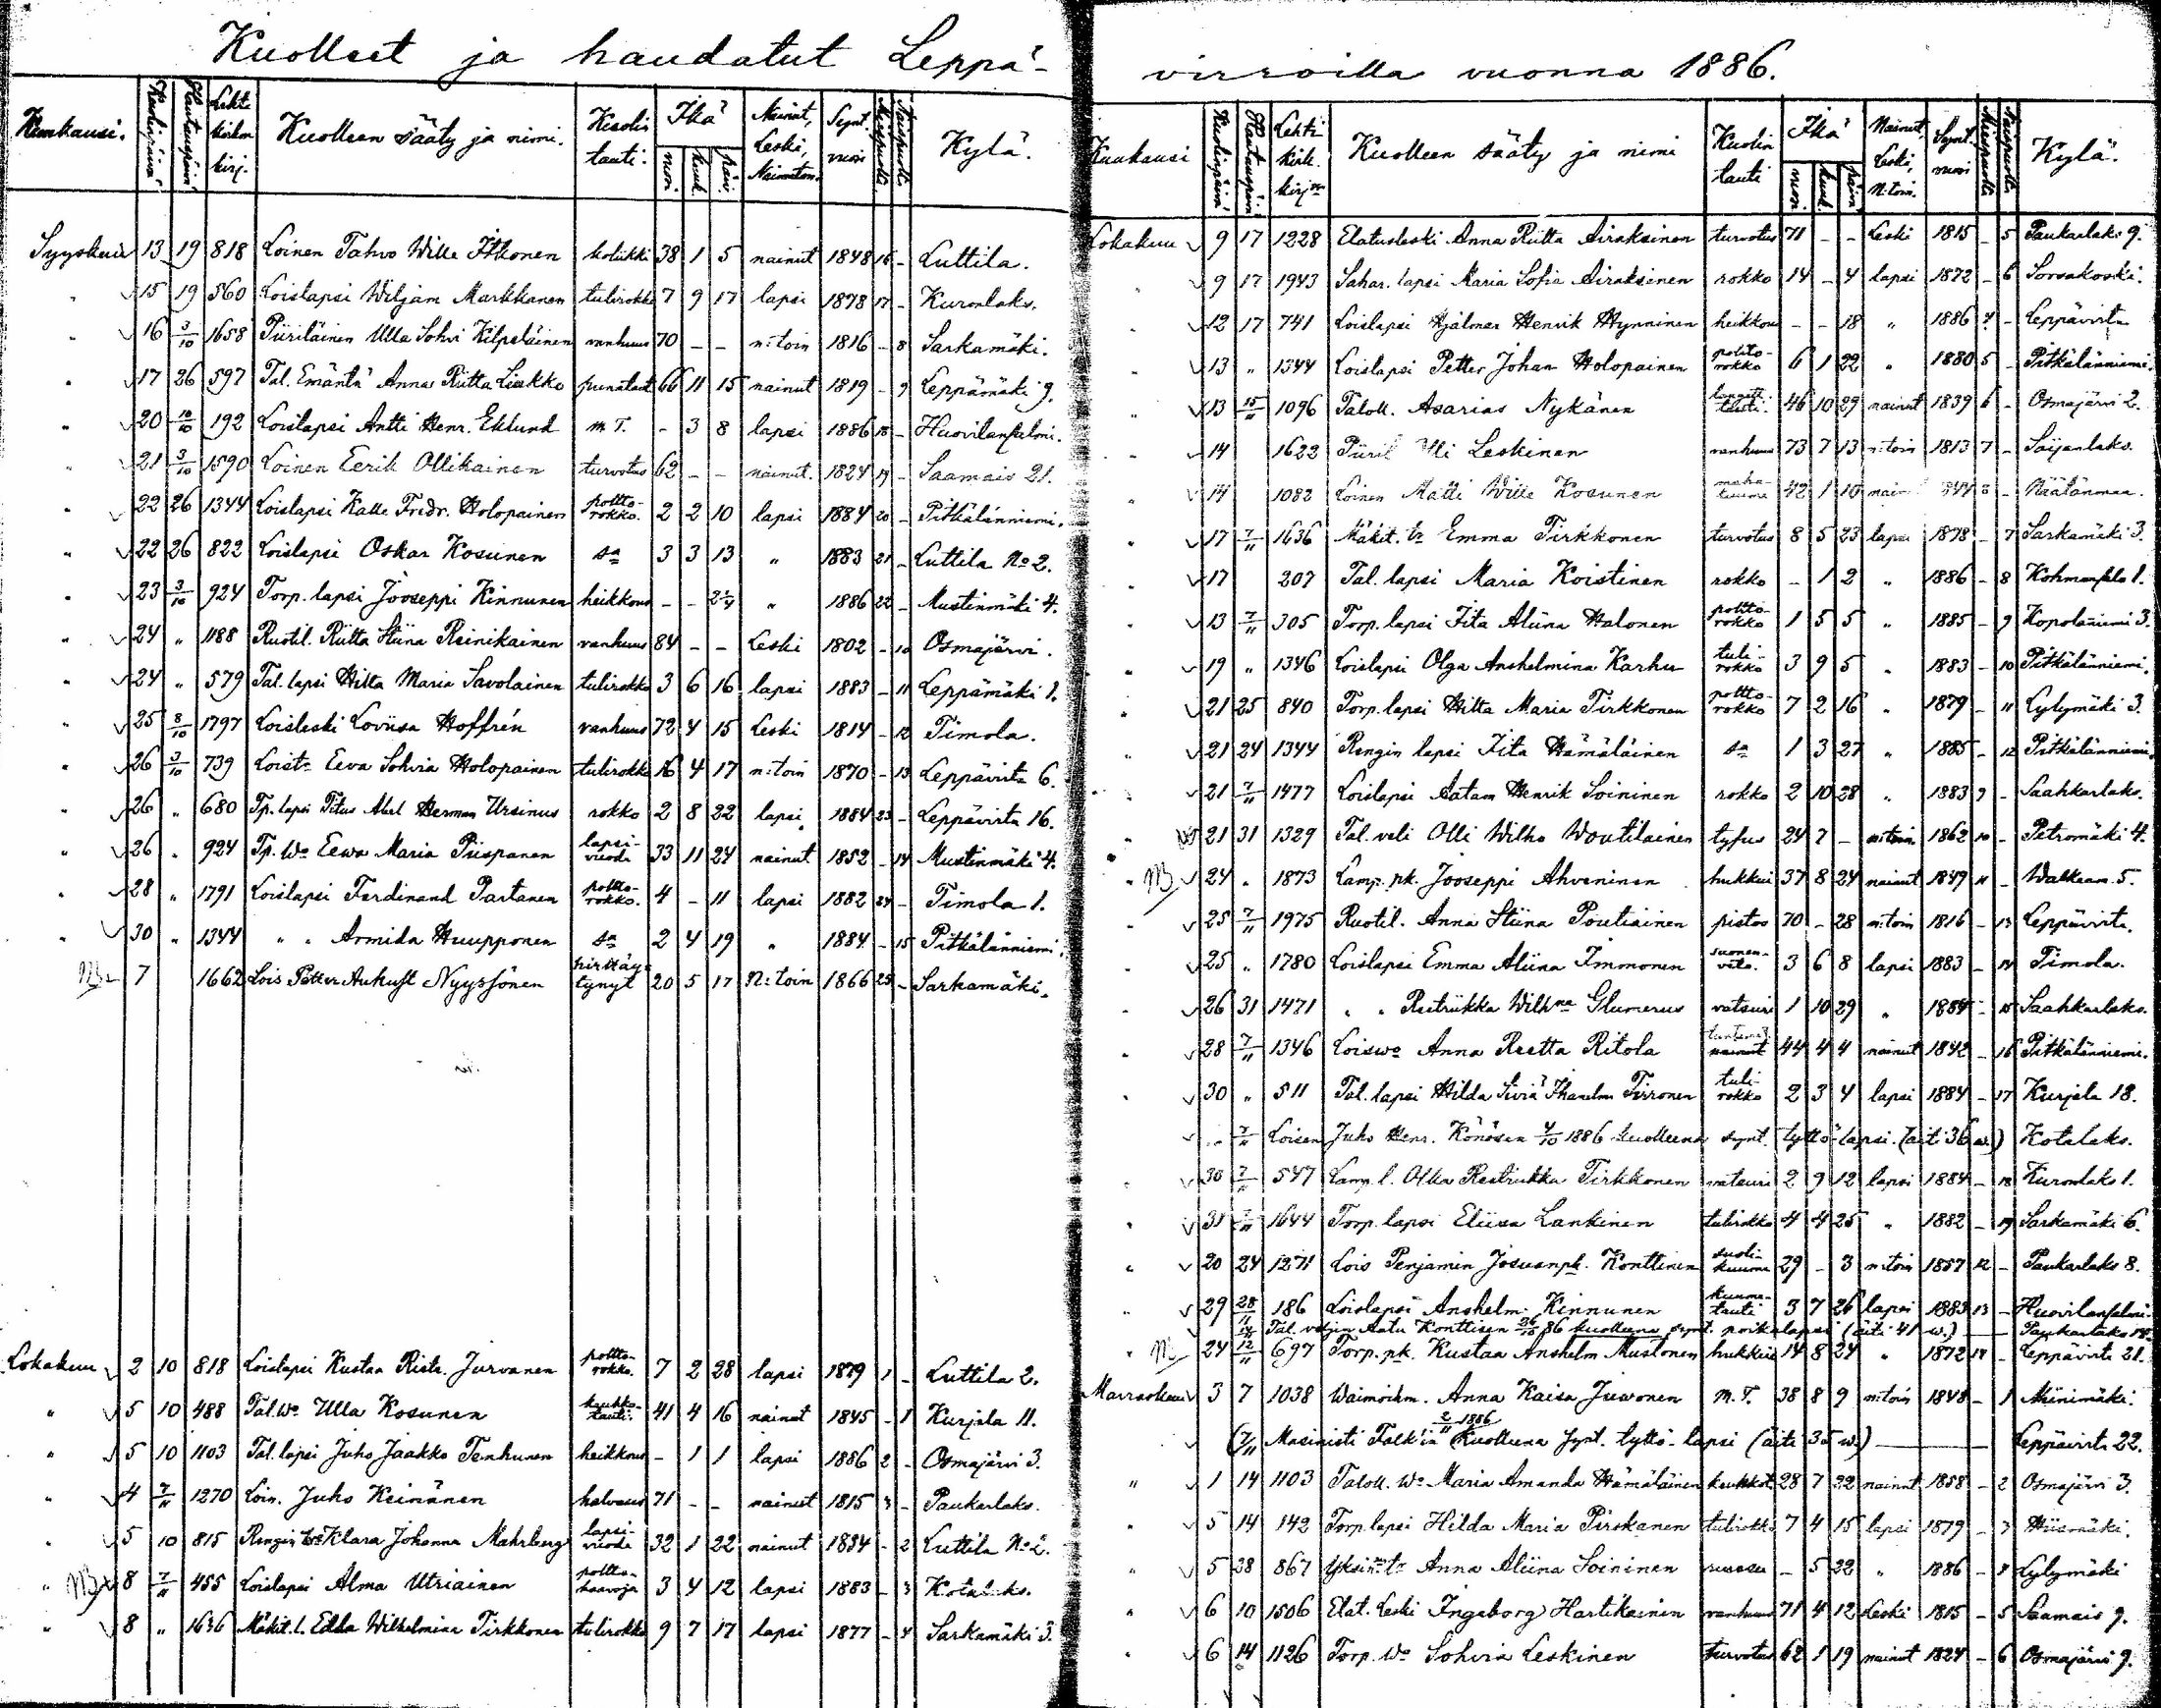 Kuolleet ja haudatut Leppä-
Kuukausi. Kuolinpäivä Hautauspäivä Lehti kirkon kirj. Kuolleen sääty ja nimi. Kuolin tauti. Ikä vuosi. kuuk. päiv. Nainut, Leski, Naimaton. Synt. vuosi Miespuolta Naispuolta Kylä.
Syyskuu 13 19 818 Loinen Tahvo Wille Itkonen kolikki 38 1 5 nainut 1848 16 - Luttila.
" 15 19 560 Loislapsi Wiljam Markkanen tulirokko 7 9 17 lapsi 1878 17 - Kuronlaks.
" 16 3/10 1658 Piiriläinen Ulla Sohvi Kilpeläinen vanhuus 70 - - n:toin 1816 - 8 Sarkamäki.
" 17 26 597 Tal. Emäntä Anna Riitta Liukko punataut 66 11 15 nainut 1819 - 9 Leppämäki 9.
" 20 10/10 192 Loislapsi Antti Henr. Eklund m. T. - 3 8 lapsi 1886 18 - Huovilansalmi.
" 21 3/10 1590 Loinen Eerik Ollikainen turvotus 62 - - nainut. 1824 19 - Saamais 21.
" 22 26 1344 Loislapsi Kalle Fredr. Holopainen poltto-rokko. 2 2 10 lapsi 1884 20 - Pitkälänniemi.
" 22 26 822 Loislapsi Oskar Kosunen sa 3 3 13 " 1883 21 - Luttila No 2.
" 23 3/10 924 Torp. lapsi Jooseppi Kinnunen heikkous - - 2 1/4 " 1886 22 - Mustinmäki 4.
" 24 " 1188 Ruotil. Riitta Stiina Reinikainen vanhuus 84 - - Leski 1802 - 10 Osmajärvi.
" 24 " 579 Tal. lapsi Hilta Maria Savolainen tulirokko 3 6 16 lapsi 1883 - 11 Leppämäki 1.
" 25 8/10 1797 Loisleski Loviisa Hoffrén vanhuus 72 4 15 Leski 1814 - 12 Timola.
" 26 3/10 739 Loistr Eeva Sohvia Holopainen tulirokko 16 4 17 n:toin 1870 - 13 Leppävirta 6.
" 26 " 680 Tp. lapsi Titus Abel Herman Ursinus rokko 2 8 22 lapsi 1884 23 - Leppävirta 16.
" 26 " 924 Tp. Wo Eewa Maria Piispanen lapsi-vuode 33 11 24 nainut 1852 - 14 Mustinmäki 4.
" 28 " 1791 Loislapsi Ferdinand Partanen poltto-rokko. 4 - 11 lapsi 1882 24 - Timola 1.
" 30 " 1344 " " Armida Huupponen sa 2 4 19 " 1884 - 15 Pitkälänniemi.
7 1662 Lois Petter Aukust Nyyssönen hirttäy-tynyt 20 5 17 N:toin 1866 25 - Sarkamäki.
Lokakuu 2 10 818 Loislapsi Kustaa Ristr. Jurvanen poltto-rokko. 7 2 28 lapsi 1879 1 - Luttila 2.
" 5 10 488 Tal. Wo Ulla Kosunen keuhko-tauti. 41 4 16 nainut 1845 - 1 Kurjala 11.
" 5 10 1103 Tal. lapsi Juho Jaakko Tenhunen heikkous - 1 1 lapsi 1886 2 - Osmajärvi 3.
" 4 7/11 1270 Loin. Juho Keinänen halvaus 71 - - nainut 1815 3 - Paukarlaks.
" 5 10 815 Rengin Wo Klara Johanna Mahrberg lapsi-vuode 32 1 22 nainut 1854 - 2 Luttila No 2.
" 8 7/11 455 Loislapsi Alma Utriainen poltto-haavoja 3 4 12 lapsi 1883 - 3 Kotalaks.
" 8 " 1636 Mäkit. l. Edla Wilhelmina Tirkkonen tulirokko 9 7 17 lapsi 1877 - 4 Sarkamäki 3.
virroilla vuonna 1886.
Kuukausi Kuolinpäivä Hautauspäivä Lehti kirk. kirj. Kuolleen sääty ja nimi Kuolin tauti Ikä vuosi. kuuk. päivä Nainut, Leski, N:toin. Synt. vuosi Miespuolta Naispuolta Kylä.
Lokakuu 9 17 1228 Elatusleski Anna Riitta Airaksinen turvotus 71 - - Leski 1815 - 5 Paukarlaks 9.
" 9 17 1943 Sahar. lapsi Maria Sofia Airaksinen rokko 14 - 4 lapsi 1872 - 6 Sorsakoski.
" 12 17 741 Loislapsi Hjalmar Henrik Hynninen heikkous - - 18 " 1886 4 - Leppävirta
" 13 " 1344 Loislapsi Petter Johan Holopainen poltto-rokko 6 1 22 " 1880 5 - Pitkälänniemi.
" 13 15/11 1096 Taloll. Asarias Nykänen 46 10 29 nainut 1839 6 - Osmajärvi 2.
" 14 1622 Piiril Olli Leskinen vanhuus 73 7 13 n:toin 1813 7 - Saijanlaks.
" 14 1082 Loinen Matti Wille Kosunen 42 1 10 1844 8 - Näätänmaa.
" 17 7/11 1636 Mäkit. tr Emma Tirkkonen turvotus 8 5 23 lapsi 1878 - 7 Sarkamäki 3.
" 17 207 Tal. lapsi Maria Koistinen rokko - 1 2 " 1886 - 8 Kohmansalo 1.
" 13 7/11 305 Torp. lapsi Iita Aliina Halonen poltto-rokko 1 5 5 " 1885 - 9 Kopolaniemi 3.
" 19 " 1346 Loislapsi Olga Anshelmina Karhu tuli-rokko 3 9 5 " 1883 - 10 Pitkälänniemi.
" 21 25 840 Torp. lapsi Hilta Maria Tirkkonen poltto-rokko 7 2 16 " 1879 - 11 Lylymäki 3.
" 21 24 1344 Rengin lapsi Iita Hämäläinen sa 1 3 27 " 1885 - 12 Pitkälänniemi
" 21 7/11 1477 Loislapsi Aatam Henrik Soininen rokko 2 10 28 " 1883 9 - Saahkarlaks.
" 21 31 1329 Tal. veli Olli Wilho Woutilainen tyfus 24 7 - n:toin 1862 10 - Petromäki 4.
" 24 " 1873 Lamp. pk. Jooseppi Ahveninen hukkui 37 8 24 nainut 1849 11 - Walkeam. 5.
" 25 7/11 1975 Ruotil. Anna Stiina Poutiainen pistos 70 - 28 n:toin 1816 - 13 Leppävirta.
" 25 " 1780 Loislapsi Emma Aliina Immonen suonen-veto. 3 6 8 lapsi 1883 - 14 Timola.
" 26 31 1471 " " Reetriikka Wilhna Glumerus vatsuri 1 10 29 " 1884 - 15 Saahkarlaks.
" 28 7/11 1346 Loiswo Anna Reetta Ritola 44 4 4 nainut 1842 - 16 Pitkälänniemi.
" 30 " 511 Tal. lapsi Hilda Siviä Tirronen tuli-rokko 2 3 4 lapsi 1884 - 17 Kurjala 18.
" 7/11 Loisen Juho Henr. Könösen 4/10 1886 kuolleena synt. tyttö-lapsi. (äiti 36 w.) Kotalaks.
" 30 7/11 547 Lamp. l. Olka Reetriikka Tirkkonen vatsuri 2 9 12 lapsi 1884 - 18 Kuronlaks 1.
" 31 7/11 1644 Torp. lapsi Eliisa Lankinen tulirokko 4 4 25 " 1882 - 19 Sarkamäki 6.
" 20 24 1271 Lois Penjamin Josuanpk. Konttinen suoli-kuume 29 - 3 n:toin 1857 12 - Paukarlaks 8.
" 29 28/11 186 Loislapsi Anshelm Kinnunen kuume-tauti 3 7 26 lapsi 1883 13 - Huovilansalmi.
14/11 Tal. veljen Aatu Konttisen 26/10 86 kuolleena synt. poikalapsi (äiti 41 w.) — Paukarlaks 14.
" 24 12/11 697 Torp. pk. Kustaa Anshelm Mustonen hukkui 14 8 24 " 1872 14 - Leppävirta 21.
Marraskuu 3 7 1038 Waimoihm. Anna Kaisa Juvonen m. T. 38 8 9 n:toin 1848 - 1 Niinimäki.
7/11 Masinisti Falk'in 2/11 1886 kuolleena synt. tyttö-lapsi (äiti 35 w.) — Leppävirta 22.
" 1 14 1103 Taloll. Wo Maria Amanda Hämäläinen keuhkot 28 7 22 nainut 1858 - 2 Osmajärvi 3.
" 5 14 142 Torp. lapsi Hilda Maria Pirskanen tulirokko 7 4 15 lapsi 1879 - 3 Hiismäki.
" 5 28 867 Yksin. tr Anna Aliina Soininen - 5 22 " 1886 - 4 Lylymäki
" 6 10 1506 Elat. Leski Ingeborg Hartikainen vanhuus 71 4 12 Leski 1815 - 5 Saamais 9.
" 6 14 1126 Torp. Wo Sohvia Leskinen turvotus 62 1 19 nainut 1824 - 6 Osmajärvi 9.